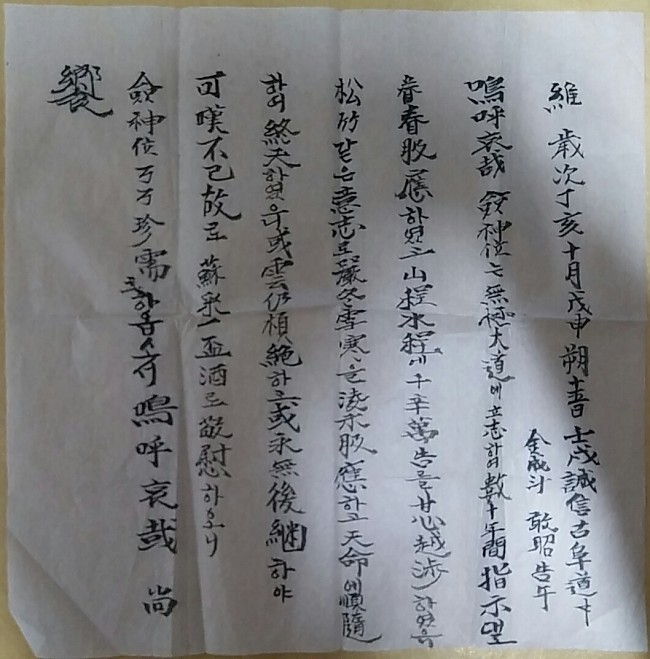 維 歲次丁亥十月戊申朔十五日壬戌誠信古阜道中
金成斗 敢昭告于
嗚呼哀哉 僉神位는 無極大道에 立志하여 數十年間指示로
春春服應하였고 山程水程에 千辛萬苦를 甘心越涉하였음
松竹같은 意志로 嚴冬雪寒을 凌柔服應하고 天命에 順隨
하여 終天하였으며 或雲仍楨絶하고 或永無後継하야
可嘆不已故로 蘇泉一盃酒로 敬慰하오니
僉神位 万万珍需 하옵소서 嗚呼哀哉 尙
饗